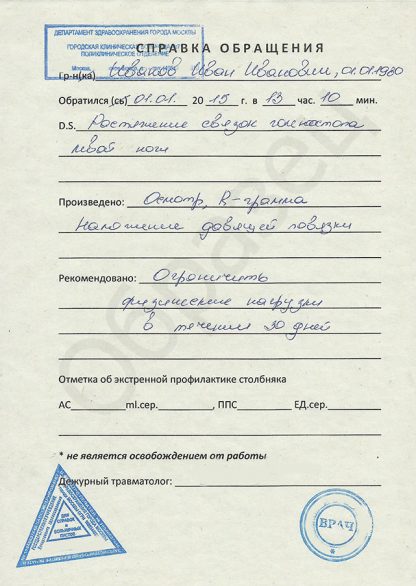 ДЕПАРТАМЕНТ ЗДРАВООХРАНЕНИЯ ГОРОДА МОСКВЫ
ГОРОДСКАЯ КЛИНИЧЕСКАЯ
ПОЛИКЛИНИЧЕСКОЕ ОТДЕЛЕНИЕ
СПРАВКА ОБРАЩЕНИЯ
Гр-н(ка) Иван Иванович, 01.01.1980
Обратился (сь) 01.01. 2015 г. в 13 час. 10 мин.
D.S. Растяжение связок голеностопа
левой ноги
Произведено: Осмотр, R-грамма
Наложение давящей повязки
Рекомендовано: Ограничить
физические нагрузки
в течении 20 дней
Отметка об экстренной профилактике столбняка
АС ml.сер. , ППС ЕД.сер.
* не является освобождением от работы
Дежурный травматолог:
ДЛЯ СПРАВОК И БОЛЬНИЧНЫХ ЛИСТОВ
ВРАЧ
Образец